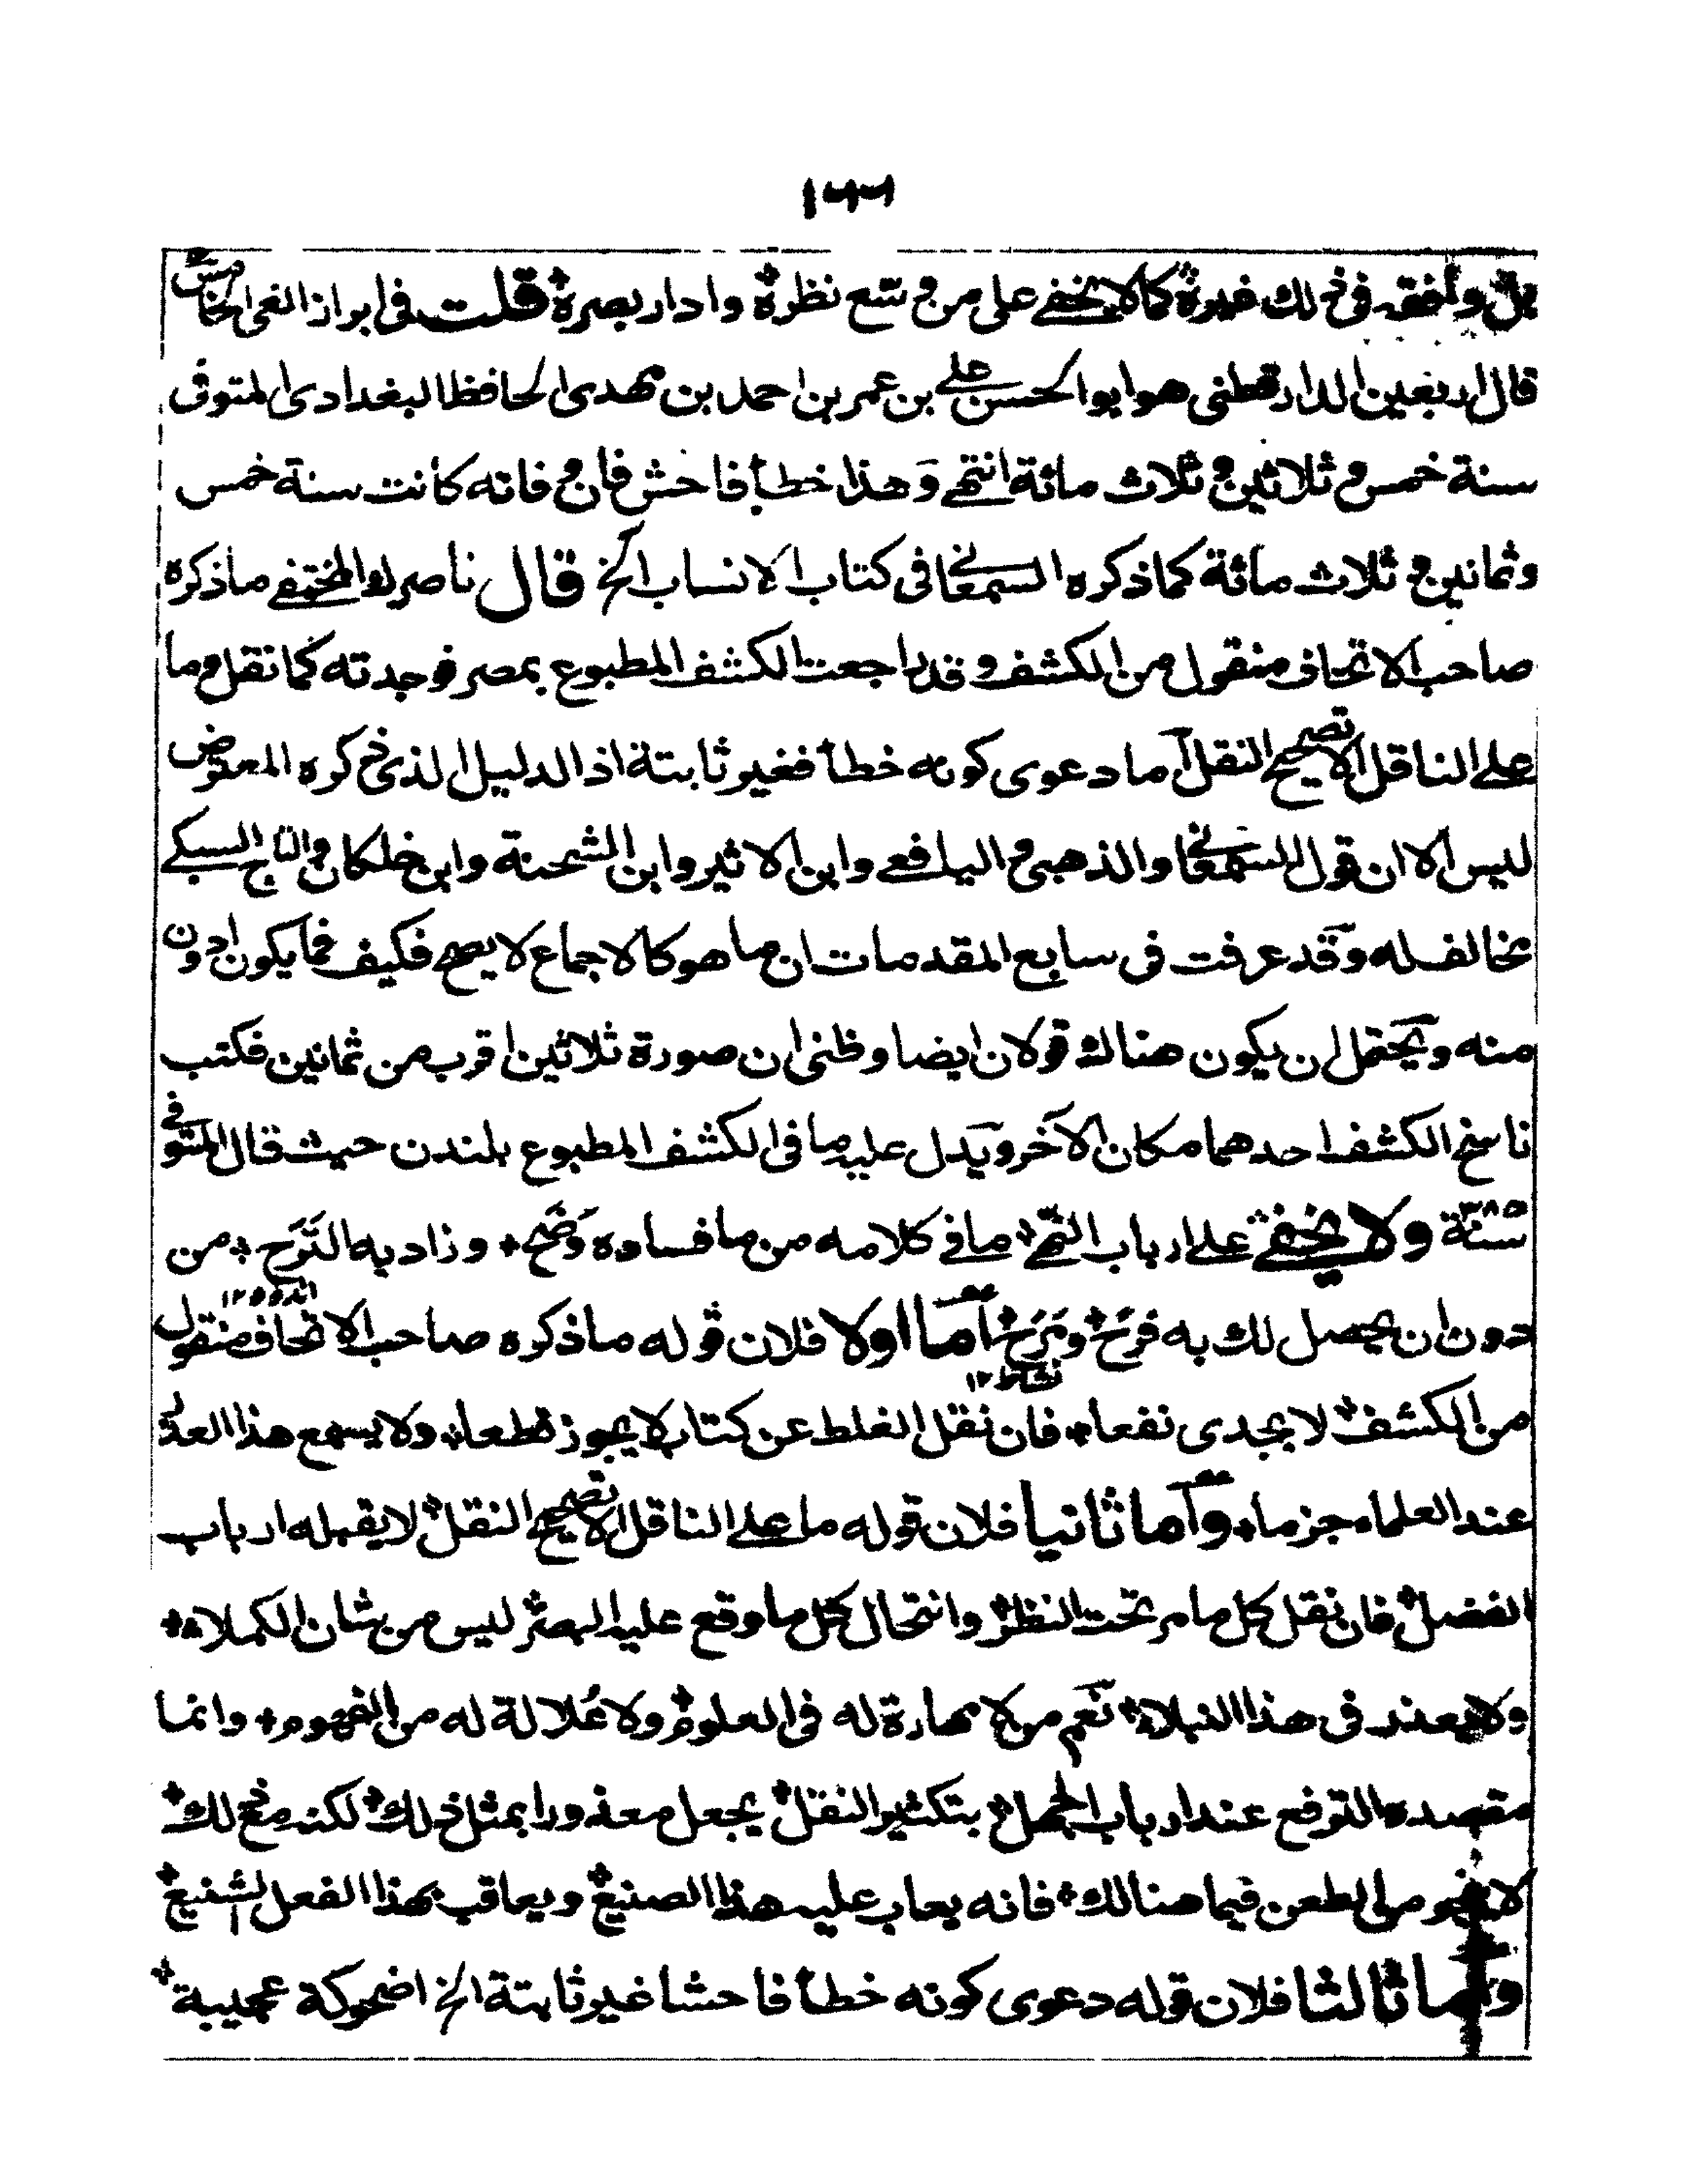 ١٣٣
بل وافقه في ذلك غيره كما لا يخفى على من وسّع نظره وادار بصره قلت في ابراز الغي الخامس
قال اربعين الدارقطني هو ابو الحسن علي بن عمر بن احمد بن مهدى الحافظ البغدادى المتوفى
سنة خمس وثلاثين وثلاث مائة انتهى وهذا خطأ فاحش فان وفاته كانت سنة خمس
وثمانين وثلاث مائة كما ذكره السمعاني في كتاب الانساب الخ قال ناصرك المختفى ما ذكره
صاحب الاتحاف منقول من الكشف وقد راجعت الكشف المطبوع بمصر فوجدته كما نقل وما
على الناقل الا تصحيح النقل أما دعوى كونه خطأ فغير ثابتة اذ الدليل الذى ذكره المعترض
ليس الا ان قول السمعاني والذهبي واليافعي وابن الاثير وابن الشحنة وابن خلكان والتاج السبكي
مخالف له وقد عرفت في سابع المقدمات ان ما هو كالاجماع لا يصح فكيف فما يكون ادون
منه ويحتمل ان يكون هناك قولان ايضا وظني ان صورة ثلاثين اقرب من ثمانين فكتب
ناسخ الكشف احدهما مكان الآخر ويدل عليه ما في الكشف المطبوع بلندن حيث قال المتوفى
سنة ٣٨٥ ولا يخفى على ارباب النهى ما في كلامه من ما فساده وَضَح وزاد به التَرَح من
دون ان يحصل لك به فرح ومَرَح أما اولا فلان قوله ما ذكره صاحب الاتحاف منقول
اندوه ١٢
نشاط ١٢
من الكشف لا يجدى نفعا فان نقل الغلط عن كتاب لا يجوز قطعا ولا يسمع هذا العذر
عند العلماء جزما وأما ثانيا فلان قوله ما على الناقل الا تصحيح النقل لا يقبله ارباب
الفضل فان نقل كل ما مر تحت النظر وانتحال كل ما وقع عليه البصر ليس من شان الكملاء
ولا يعذر في هذا النبلاء نعم من لا مهارة له في العلوم ولا عُلالة له من الفهوم وانما
مقصده الترفع عند ارباب الجهل بتكثير النقل يجعل معذورا بمثل ذلك لكنه مع ذلك
لا ينجو من الطعن فيما هنالك فانه يعاب عليه هذا الصنيع ويعاقب بهذا الفعل الشنيع
وأما ثالثا فلان قوله دعوى كونه خطأ فاحشا غير ثابتة الخ اضحوكة عجيبة